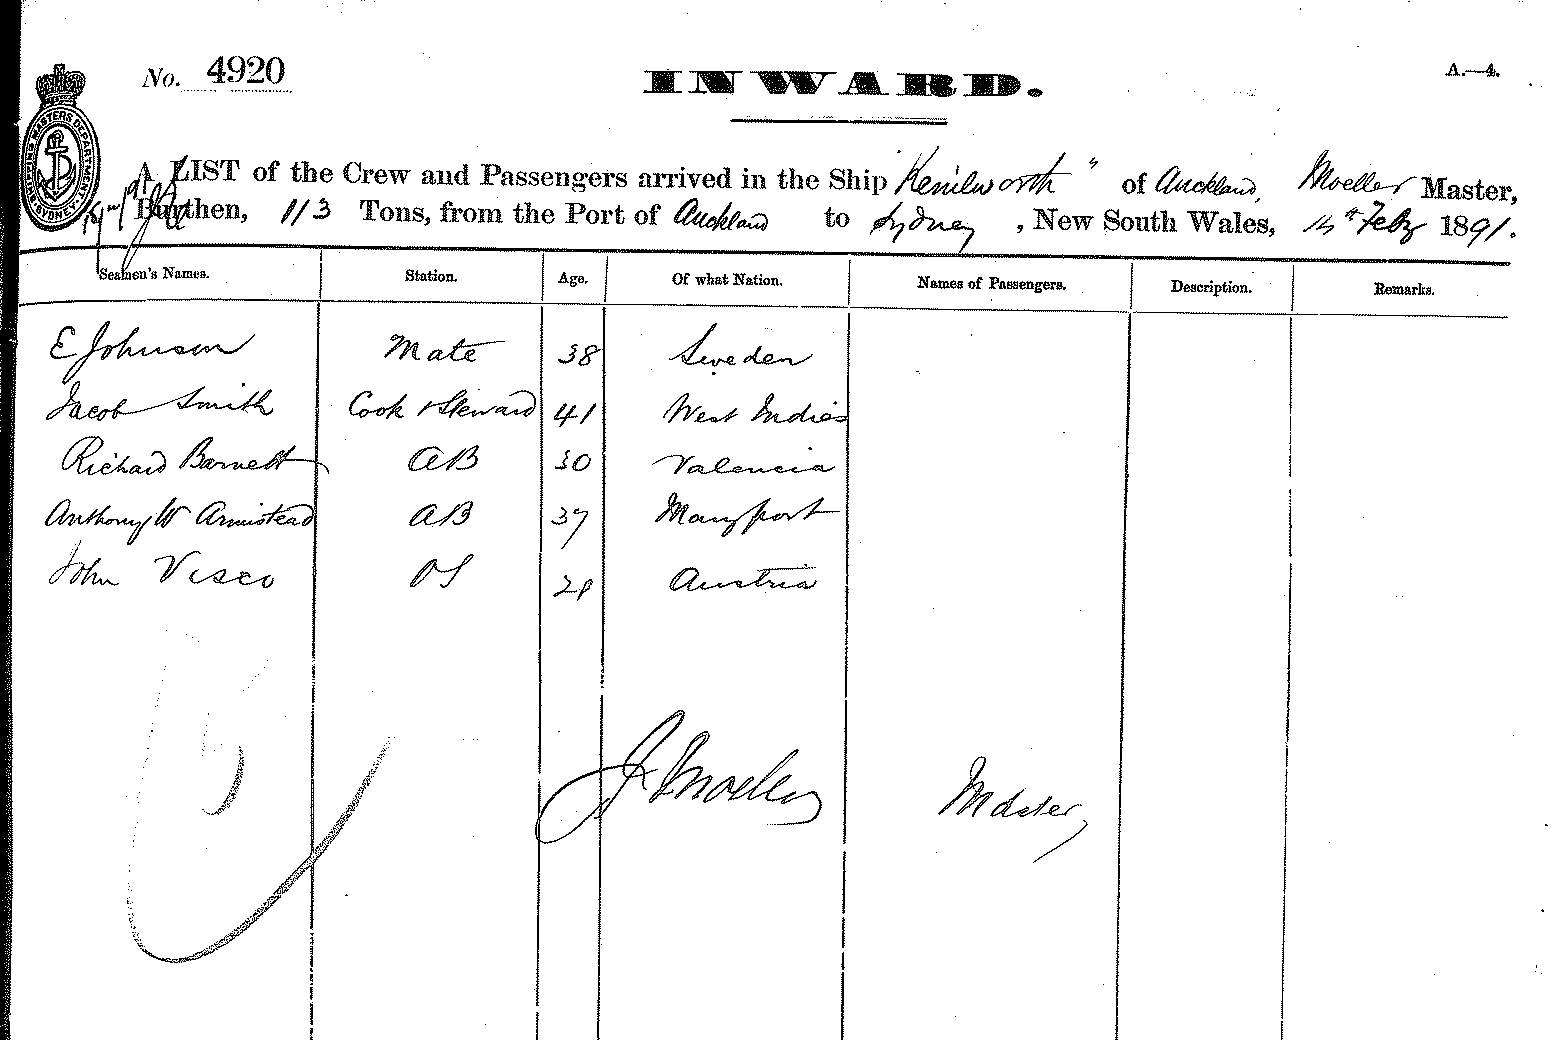 No. 4920
INWARD.
A.—4.
SHIPPING MASTERS DEPARTMENT SYDNEY
A LIST of the Crew and Passengers arrived in the Ship "Kenilworth" of Auckland, Moeller Master,
Burthen, 113 Tons, from the Port of Auckland to Sydney, New South Wales, Feby 1891.
Seamen's Names. Station. Age. Of what Nation. Names of Passengers. Description. Remarks.
E Johnson Mate 38 Sweden
Jacob Smith Cook & Steward 41 West Indies
Richard Barnett AB 30 Valencia
Anthony W Armistead AB 37 Maryport
John Visco OS Austria
J Moeller Master